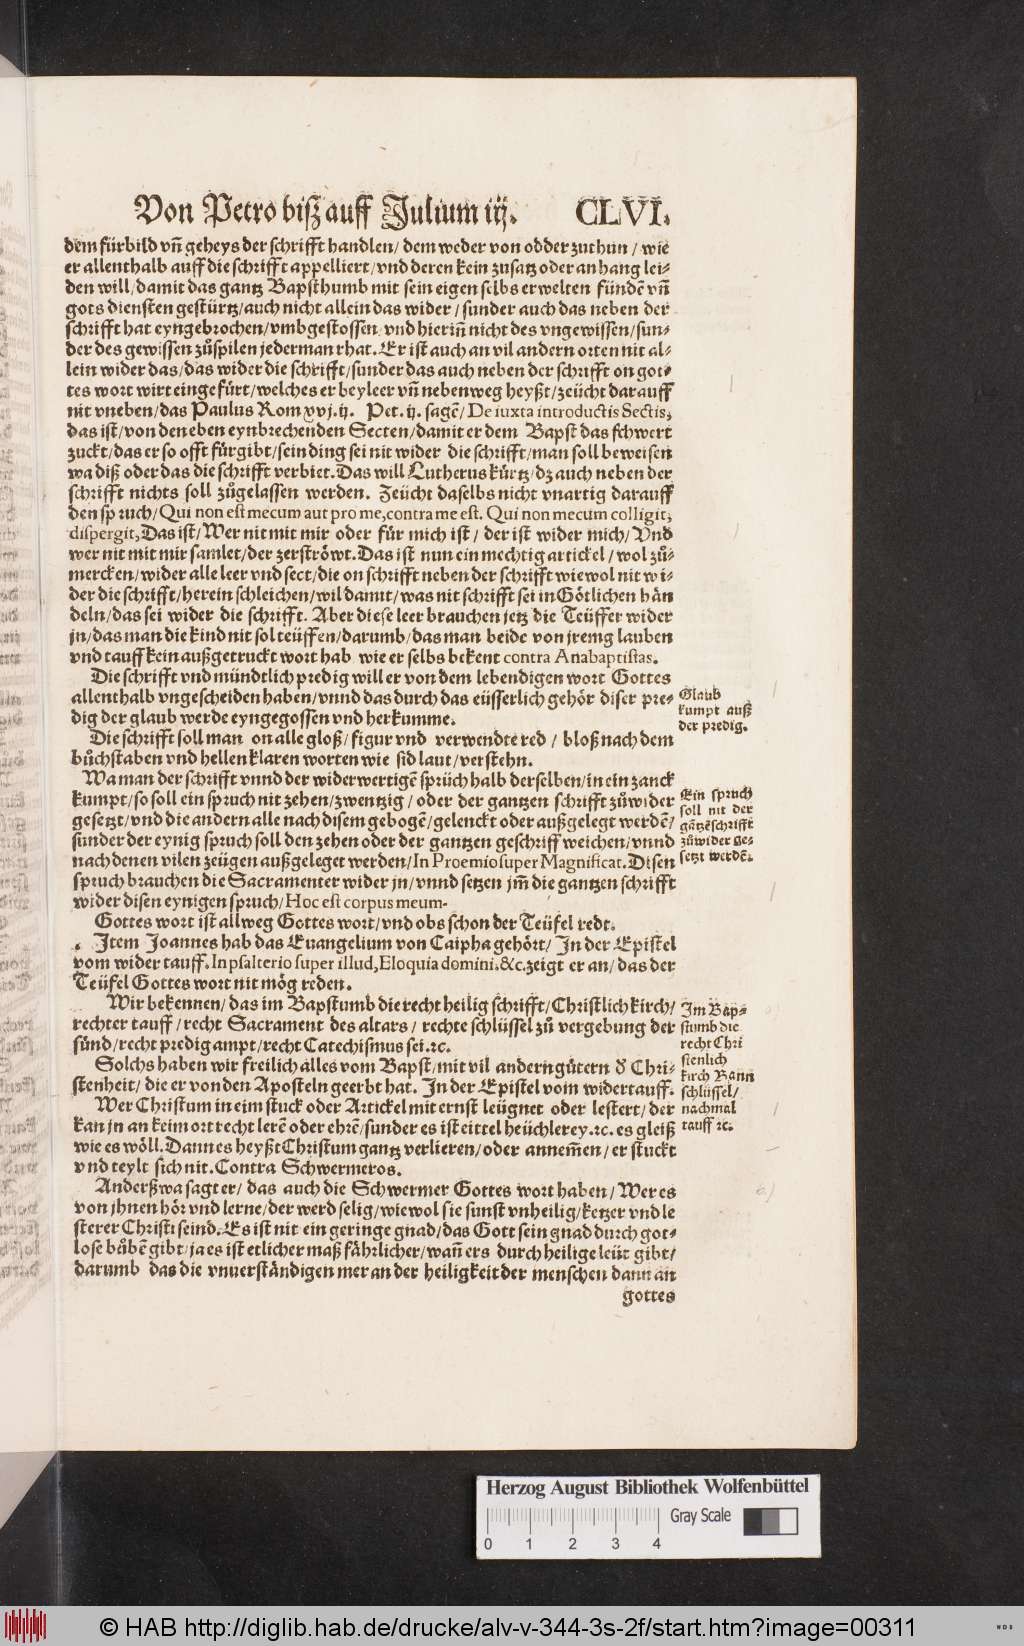 Von Petro biß auff Julium iij. CLVI.
dem fürbild vñ geheys der schrifft handlen/ dem weder von odder zuthun / wie
er allenthalb auff die schrifft appelliert/vnd deren kein zusatz oder anhang lei-
den will/damit das gantz Bapsthumb mit sein eigen selbs erwelten fündē vñ
gots diensten gestürtz/auch nicht allein das wider / sunder auch das neben der
schrifft hat eyngebrochen/vmbgestossen vnd hierinn̄ nicht des vngewissen/sun-
der des gewissen zůspilen jederman rhat. Er ist auch an vil andern orten nit al-
lein wider das/das wider die schrifft/sunder das auch neben der schrifft on got-
tes wort wirt eingefürt/welches er beyleer vñ nebenweg heyßt/zeücht darauff
nit vneben/das Paulus Rom xvj.ij. Pet. ij. sagē/ De iuxta introductis Sectis,
das ist/von den eben eynbrechenden Secten/damit er dem Bapst das schwert
zuckt/das er so offt fürgibt/sein ding sei nit wider die schrifft/man soll beweisen
wa diß oder das die schrifft verbiet. Das will Lutherus kürtz/dz auch neben der
schrifft nichts soll zůgelassen werden. Zeücht daselbs nicht vnartig darauff
den spruch/Qui non est mecum aut pro me, contra me est. Qui non mecum colligit,
dispergit, Das ist/Wer nit mit mir oder für mich ist/ der ist wider mich/Vnd
wer nit mit mir samlet/der zerströwt. Das ist nun ein mechtig artickel/wol zů-
mercken/wider alle leer vnd sect/die on schrifft neben der schrifft wiewol nit wi-
der die schrifft/herein schleichen/wil damit/was nit schrifft sei in Götlichen hän
deln/das sei wider die schrifft. Aber diese leer brauchen jetz die Teüffer wider
jn/das man die kind nit sol teüffen/darumb/das man beide von jremg lauben
vnd tauff kein außgetruckt wort hab wie er selbs bekent contra Anabaptistas.
Die schrifft vnd mündtlich predig will er von dem lebendigen wort Gottes
allenthalb vngescheiden haben/vnnd das durch das eüsserlich gehör diser pre-
dig der glaub werde eyngegossen vnd herkumme.
Glaub
kumpt auß
der predig.
Die schrifft soll man on alle gloß/figur vnd verwendte red / bloß nach dem
bůchstaben vnd hellen klaren worten wie sid laut/verstehn.
Wa man der schrifft vnnd der widerwertigē sprüch halb derselben/in ein zanck
kumpt/so soll ein spruch nit zehen/zwentzig/oder der gantzen schrifft zůwider
gesetzt/vnd die andern alle nach disem gebogē/gelenckt oder außgelegt werdē/
sunder der eynig spruch soll den zehen oder der gantzen geschriff weichen/vnnd
nach denen vilen zeügen außgeleget werden/In Proemio super Magnificat. Disen
spruch brauchen die Sacramenter wider jn/vnnd setzen jm̄ die gantzen schrifft
wider disen eynigen spruch/Hoc est corpus meum.
Ein spruch
soll nit der
gātzē schrifft
zůwider ge-
setzt werdē.
Gottes wort ist allweg Gottes wort/vnd obs schon der Teüfel redt.
Item Joannes hab das Euangelium von Caipha gehört/ In der Epistel
vom widertauff. In psalterio super illud, Eloquia domini. &c. zeigt er an/das der
Teüfel Gottes wort nit mög reden.
Wir bekennen/das im Bapstumb die recht heilig schrifft/Christlich kirch/
rechter tauff/recht Sacrament des altars/ rechte schlüssel zů vergebung der
sünd/recht predig ampt/recht Catechismus sei.ꝛc.
Solchs haben wir freilich alles vom Bapst/mit vil andern gůtern d' Chri-
stenheit/die er von den Aposteln geerbt hat. In der Epistel vom widertauff.
Im Bap-
stumb die
recht Chri
stenlich
kirch Bann
schlüssel/
nachmal
tauff ꝛc.
Wer Christum in eim stuck oder Artickel mit ernst leügnet oder lestert/der
kan jn an keim ort recht lerē oder ehrē/sunder es ist eittel heüchlerey.ꝛc. es gleiß
wie es wöll. Dann es heyßt Christum gantz verlieren/oder annem̄en/er stuckt
vnd teylt sich nit. Contra Schwermeros.
Anderßwa sagt er/das auch die Schwermer Gottes wort haben/Wer es
von jhnen hör vnd lerne/der werd selig/wiewol sie sunst vnheilig/ketzer vnd le
sterer Christi seind. Es ist nit ein geringe gnad/das Gott sein gnad durch got-
lose bůbē gibt/ja es ist etlicher maß fährlicher/wann̄ ers durch heilige leüt gibt/
darumb das die vnuerständigen mer an der heiligkeit der menschen dann an
gottes
Herzog August Bibliothek Wolfenbüttel
Gray Scale
0 1 2 3 4
© HAB http://diglib.hab.de/drucke/alv-v-344-3s-2f/start.htm?image=00311